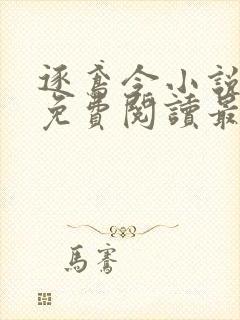 逐鸢令小說
免費閱讀最
馬騫